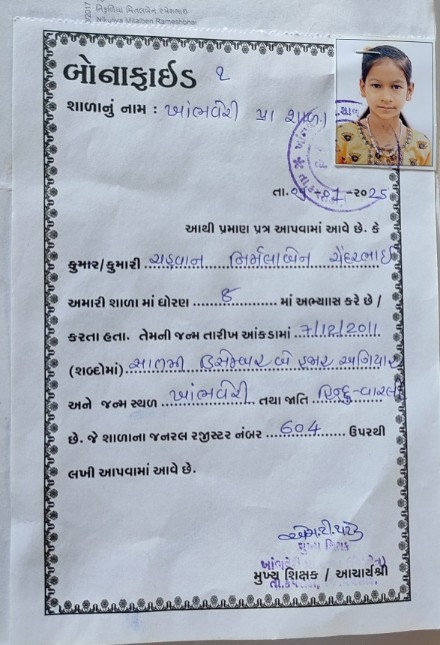 નિકુળિયા મિતલબેન રમેશભાઈ
Nikuliya Mitalben Rameshbhai
બોનાફાઇડ ૧
શાળાનું નામ : ખાંભવેરી પ્રા શાળા
તા. -૦૧-૨૦૨૫
આથી પ્રમાણ પત્ર આપવામાં આવે છે. કે
કુમાર/કુમારી ચહવાન નિર્મલાબેન
અમારી શાળા માં ધોરણ ૪ માં અભ્યાસ કરે છે /
કરતા હતા. તેમની જન્મ તારીખ આંકડામાં ૭/૧૨/૨૦૧૧
(શબ્દોમાં) સાતમી ડિસેમ્બર બે હજાર અગિયાર
અને જન્મ સ્થળ ખાંભવેરી તથા જાતિ હિન્દુ-વારલી
છે. જે શાળાના જનરલ રજીસ્ટર નંબર ૬૦૪ ઉપરથી
લખી આપવામાં આવે છે.
મુખ્ય શિક્ષક
મુખ્ય શિક્ષક / આચાર્યશ્રી